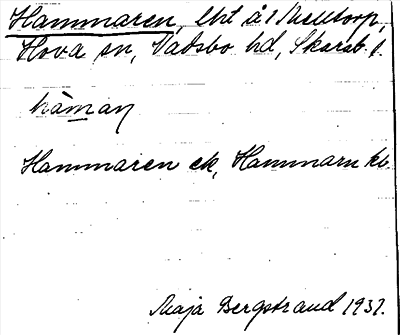 Hammaren, lht å 1 Melltorp,
Hova sn, Vadsbo hd, Skarab. l.
hàmaṇ
Hammaren ek, Hammarn kb
Maja Bergstrand 1937.